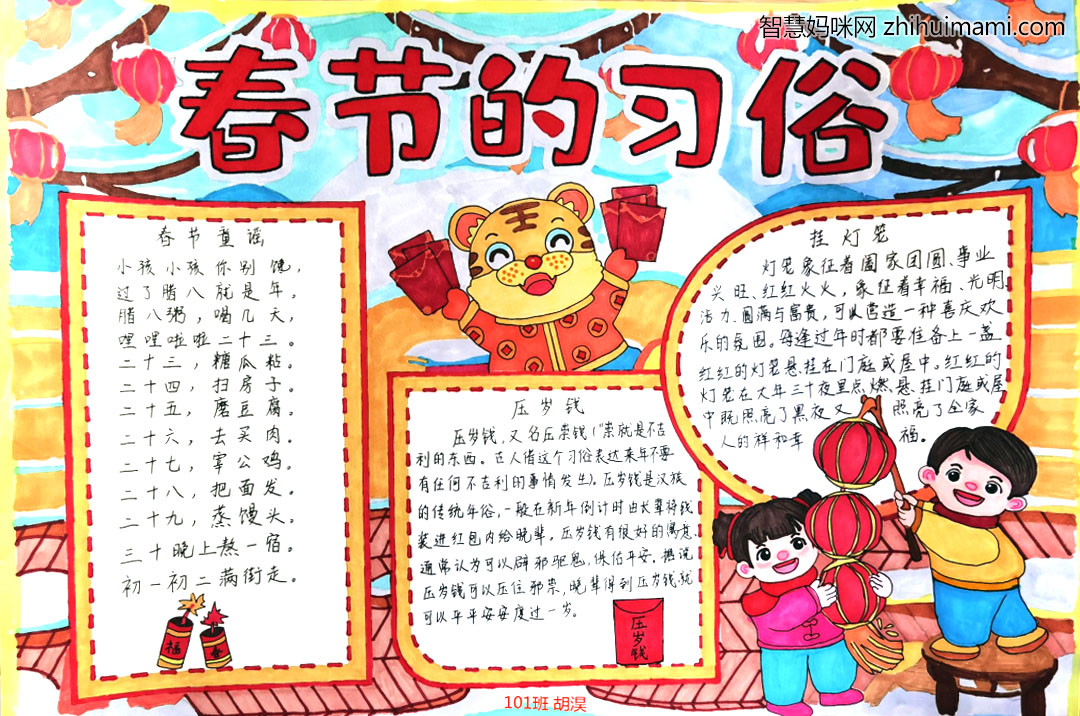 智慧妈咪网 zhihuimami.com
春节的习俗
春节童谣
小孩小孩你别馋,
过了腊八就是年。
腊八粥,喝几天,
哩哩啦啦二十三。
二十三,糖瓜粘。
二十四,扫房子。
二十五,磨豆腐。
二十六,去买肉。
二十七,宰公鸡。
二十八,把面发。
二十九,蒸馒头。
三十晚上熬一宿。
初一初二满街走。
福
王
压岁钱
压岁钱,又名压祟钱("祟就是不吉
利的东西。古人借这个习俗表达来年不要
有任何不吉利的事情发生)。压岁钱是汉族
的传统年俗,一般在新年倒计时由长辈将钱
装进红包内给晚辈。压岁钱有很好的寓意,
通常认为可以辟邪驱鬼,保佑平安。据说
压岁钱可以压住邪祟,晚辈得到压岁钱就
可以平平安安度过一岁。
压岁钱
挂灯笼
灯笼象征着阖家团圆、事业
兴旺、红红火火,象征着幸福、光明、
活力、圆满与富贵,可以营造一种喜庆欢
乐的氛围。每逢过年时都要准备上一盏
红红的灯笼悬挂在门庭或屋中。红红的
灯笼在大年三十夜里点燃悬挂门庭或屋
中既照亮了黑夜又照亮了全家
人的祥和幸福。
101班 胡淏